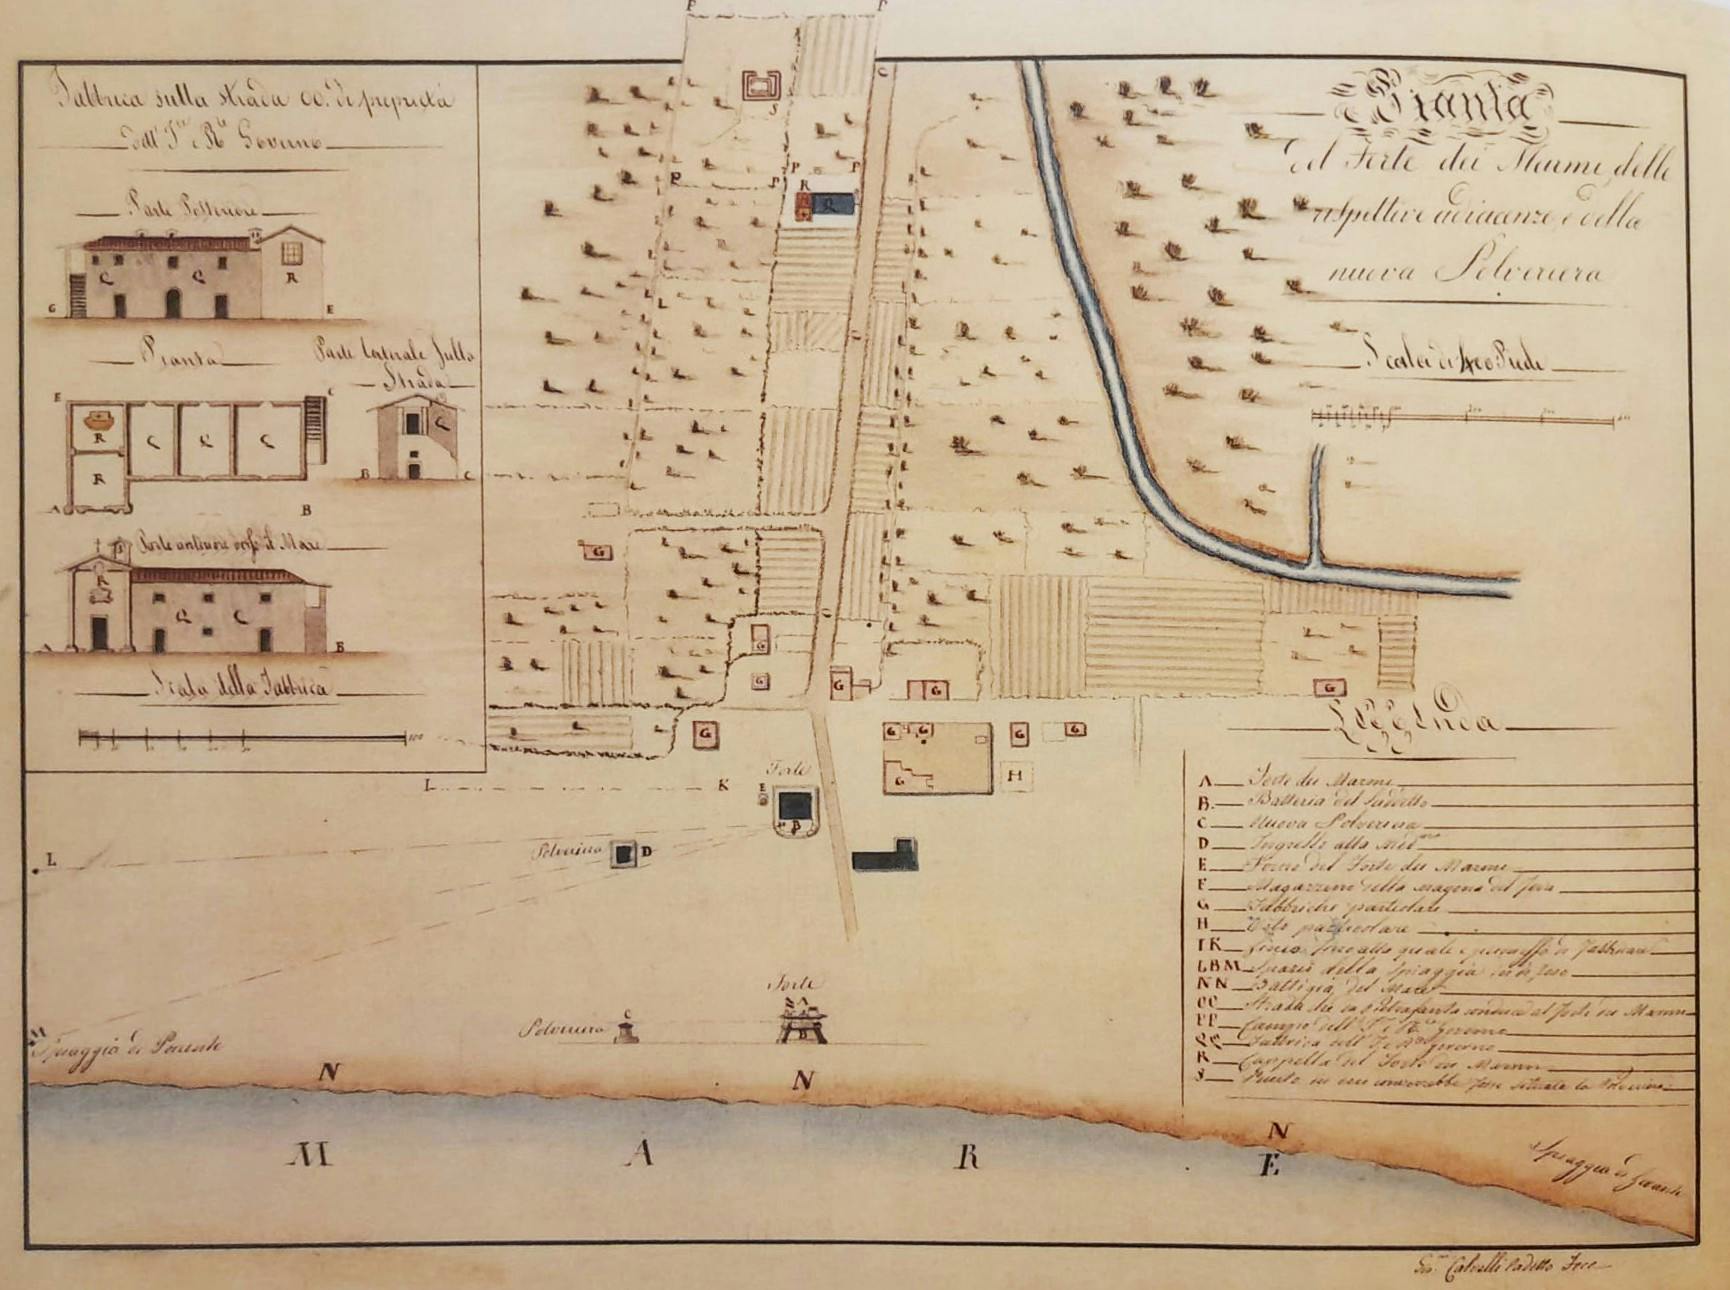 Fabbrica sulla strada oo. di proprietà
dell' I. e R. Governo
Parte Posteriore
G
Q
Q
R
E
Pianta
Parte laterale sulla
Strada
E
C
R
Q
Q
Q
R
A
B
Q
B
C
Parte anteriore verso il Mare
R
Q
Q
A
B
Scala della Fabbrica
100
Pianta
del Forte dei Marmi, delle
rispettive adiacenze e della
nuova Polveriera
Scala di 400 Piedi
P
P
O
S
P
P
P
P
R
Q
G
G
G
G
G
G
G
G
G
G
G
G
G
H
I
K
Forte
E
B
L
Polveriera
D
Forte
A
B
Polveriera
C
M
Spiaggia di Ponente
N
N
N
M A R E
Spiaggia di Levante
Leggenda
A Forte dei Marmi
B Batteria del Suddetto
C Nuova Polveriera
D Ingresso alla Med.ma
E Forno del Forte dei Marmi
F Magazzino della magona del ferro
G Fabbriche particolari
H Orto particolare
I K Linea fino alla quale è permesso di fabbricare
L B M Spazio della Spiaggia
N N Battigia del Mare
OO Strada che da Pietrasanta conduce al Forte dei Marmi
PP Campo dell' I. e R. Governo
QQ Fabbrica dell' I. e R. Governo
R Cappella del Forte dei Marmi
S Punto in cui converrebbe fosse situata la Polveriera
Calvelli Cadetto Fece